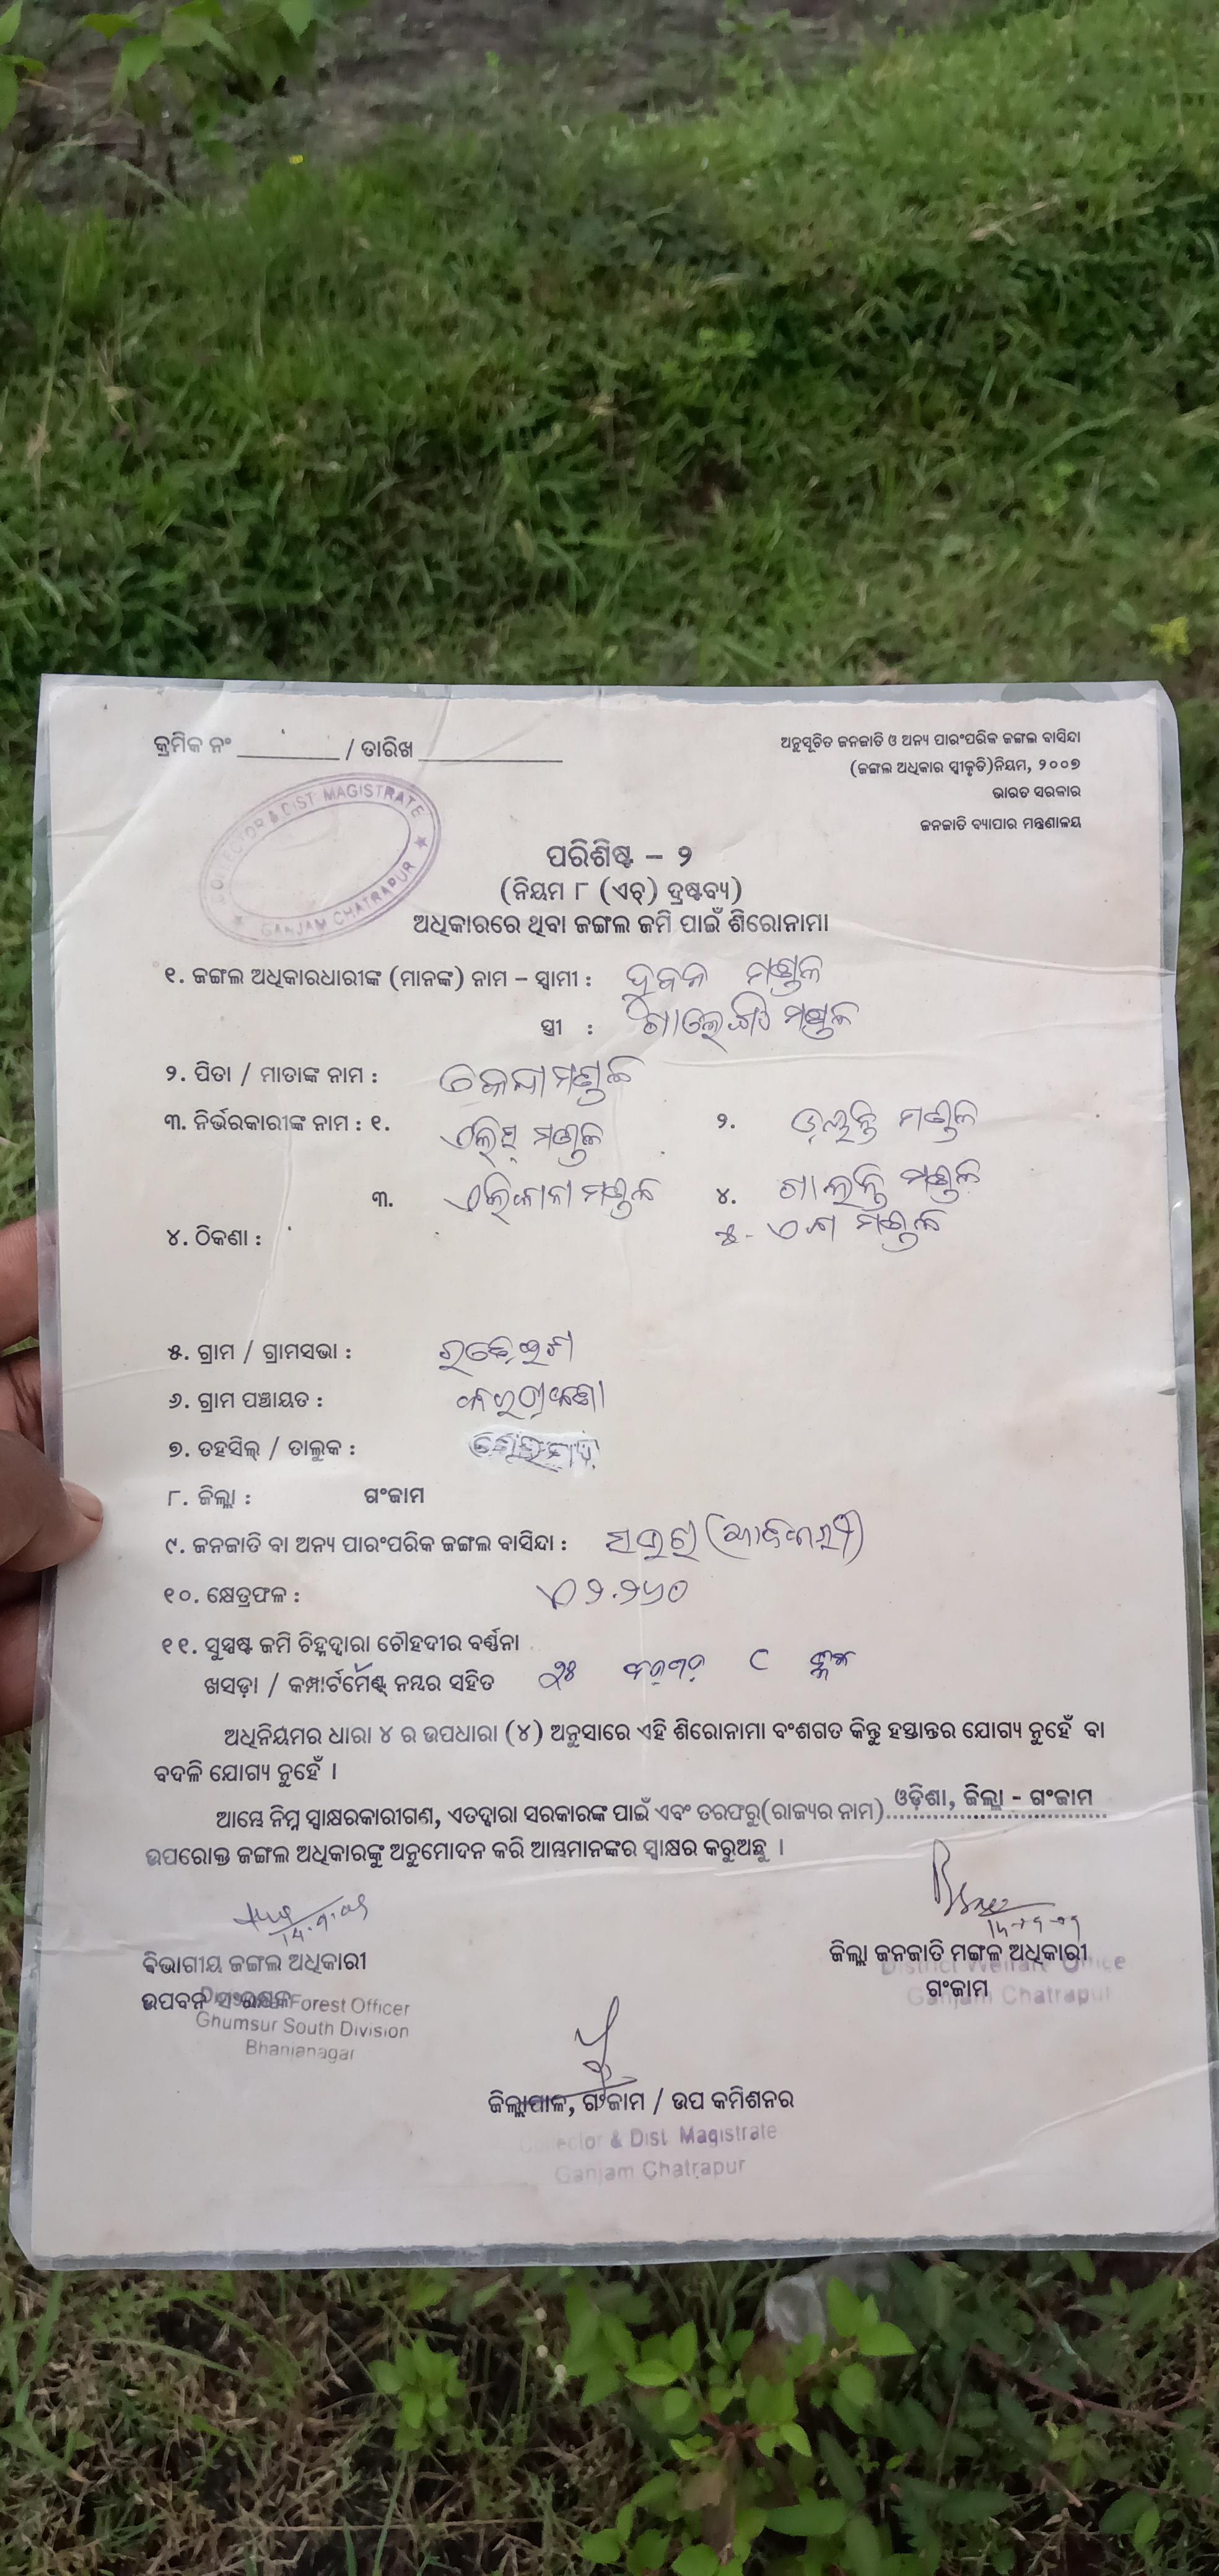 କ୍ରମିକ ନଂ ________ / ତାରିଖ ___________
ଅନୁସୂଚିତ ଜନଜାତି ଓ ଅନ୍ୟ ପାରଂପରିକ ଜଙ୍ଗଲ ବାସିନ୍ଦା
(ଜଙ୍ଗଲ ଅଧିକାର ସ୍ୱୀକୃତି)ନିୟମ, ୨୦୦୭
ଭାରତ ସରକାର
ଜନଜାତି ବ୍ୟାପାର ମନ୍ତ୍ରଣାଳୟ
COLLECTOR & DIST. MAGISTRATE
GANJAM CHATRAPUR
ପରିଶିଷ୍ଟ – ୨
(ନିୟମ ୮ (ଏଚ୍) ଦ୍ରଷ୍ଟବ୍ୟ)
ଅଧିକାରରେ ଥିବା ଜଙ୍ଗଲ ଜମି ପାଇଁ ଶିରୋନାମା
୧. ଜଙ୍ଗଲ ଅଧିକାରଧାରୀଙ୍କ (ମାନଙ୍କ) ନାମ – ସ୍ୱାମୀ : ମଣ୍ଡଳ
ସ୍ତ୍ରୀ : ମଣ୍ଡଳ
୨. ପିତା / ମାତାଙ୍କ ନାମ :
୩. ନିର୍ଭରକାରୀଙ୍କ ନାମ : ୧. ମଣ୍ଡଳ ୨. ମଣ୍ଡଳ
୩. ମଣ୍ଡଳ ୪. ମଣ୍ଡଳ
୪. ଠିକଣା : ୫. ମଣ୍ଡଳ
୫. ଗ୍ରାମ / ଗ୍ରାମସଭା :
୬. ଗ୍ରାମ ପଞ୍ଚାୟତ :
୭. ତହସିଲ୍ / ତାଲୁକ :
୮. ଜିଲ୍ଲା : ଗଂଜାମ
୯. ଜନଜାତି ବା ଅନ୍ୟ ପାରଂପରିକ ଜଙ୍ଗଲ ବାସିନ୍ଦା :
୧୦. କ୍ଷେତ୍ରଫଳ : ଏ ୨.୨୬୦
୧୧. ସୁସ୍ପଷ୍ଟ ଜମି ଚିହ୍ନଦ୍ୱାରା ଚୌହଦୀର ବର୍ଣ୍ଣନା
ଖସଡ଼ା / କମ୍ପାର୍ଟମେଣ୍ଟ୍ ନମ୍ବର ସହିତ
ଅଧିନିୟମର ଧାରା ୪ ର ଉପଧାରା (୪) ଅନୁସାରେ ଏହି ଶିରୋନାମା ବଂଶଗତ କିନ୍ତୁ ହସ୍ତାନ୍ତର ଯୋଗ୍ୟ ନୁହେଁ ବା
ବଦଳି ଯୋଗ୍ୟ ନୁହେଁ ।
ଆମ୍ଭେ ନିମ୍ନ ସ୍ୱାକ୍ଷରକାରୀଗଣ, ଏତଦ୍ୱାରା ସରକାରଙ୍କ ପାଇଁ ଏବଂ ତରଫରୁ(ରାଜ୍ୟର ନାମ) ଓଡ଼ିଶା, ଜିଲ୍ଲା - ଗଂଜାମ
ଉପରୋକ୍ତ ଜଙ୍ଗଲ ଅଧିକାରଙ୍କୁ ଅନୁମୋଦନ କରି ଆମ୍ଭମାନଙ୍କର ସ୍ୱାକ୍ଷର କରୁଅଛୁ ।
ବିଭାଗୀୟ ଜଙ୍ଗଲ ଅଧିକାରୀ
ଉପବନ ସଂରକ୍ଷକ
Forest Officer
Ghumsur South Division
Bhanjanagar
ଜିଲ୍ଲା ଜନଜାତି ମଙ୍ଗଳ ଅଧିକାରୀ
District Welfare Office
ଗଂଜାମ
Ganjam Chatrapur
ଜିଲ୍ଲାପାଳ, ଗଂଜାମ / ଉପ କମିଶନର
Collector & Dist. Magistrate
Ganjam Chatrapur